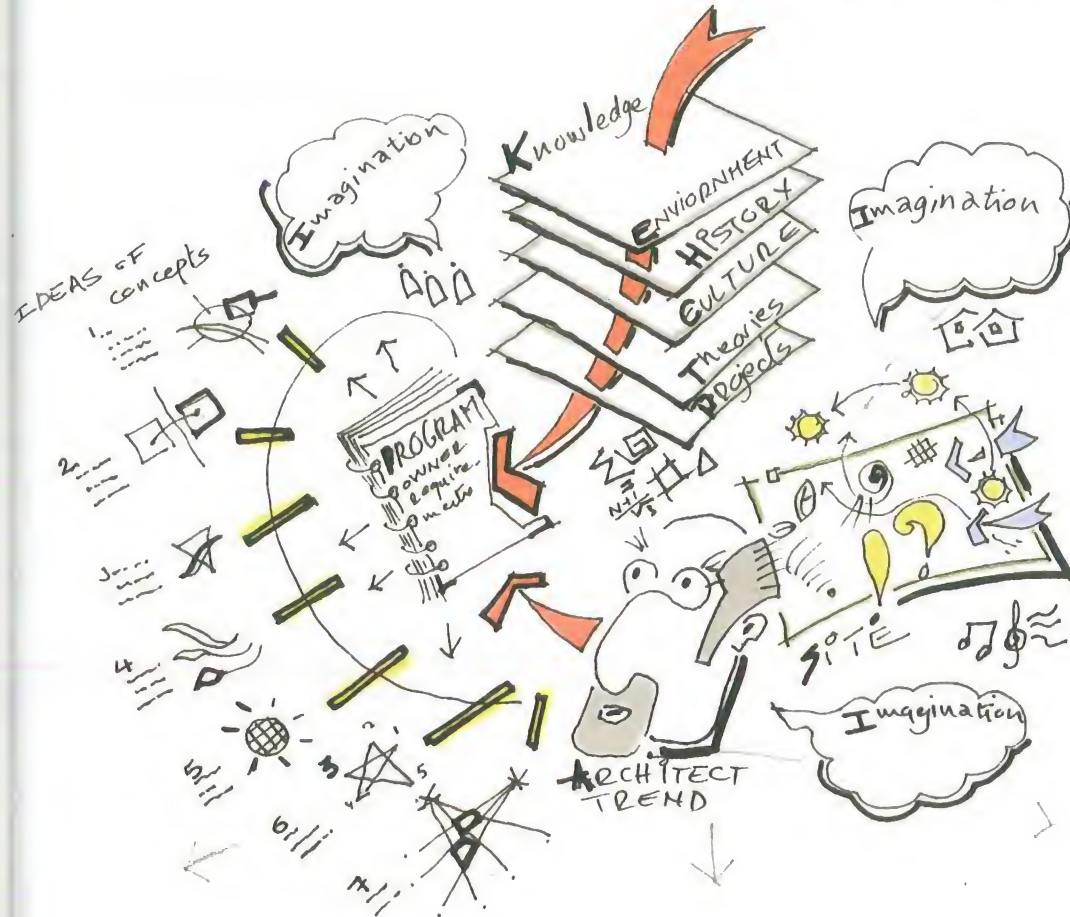 Knowledge
ENVIORNMENT
HISTORY
CULTURE
Theories
PRojects
Imagination
Imagination
IDEAS OF
concepts
1.
2.
3
4
5
6
7
PROGRAM
OWNER
Require.
ments
N+1
√3
3
5
SITE
Imagination
ARCHITECT
TREND